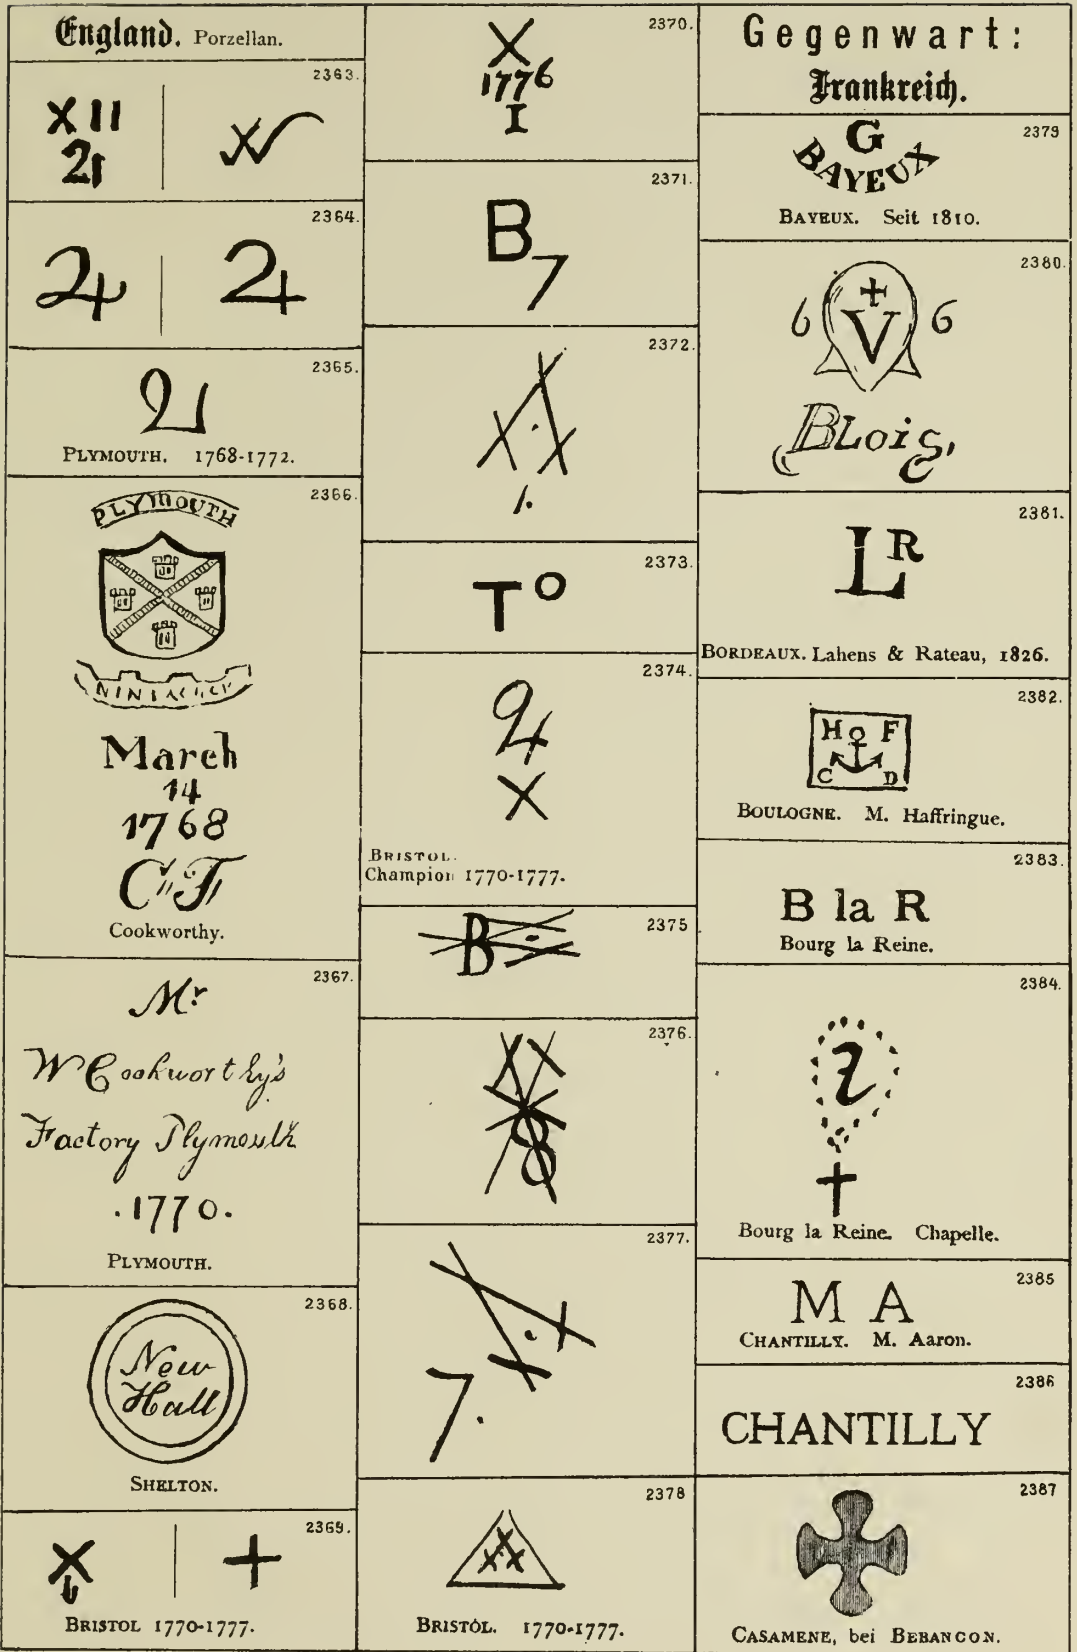 England. Porzellan.
2363.
X II
21
2364.
2365.
PLYMOUTH. 1768-1772.
2366.
PLYMOUTH
March
14
1768
CF
Cookworthy.
2367.
Mr
W Cookworthy's
Factory Plymouth
.1770.
PLYMOUTH.
2368.
New
Hall
SHELTON.
2369.
X
+
BRISTOL 1770-1777.
2370.
X
1776
I
2371.
B
7
2372.
1.
2373.
To
2374.
X
BRISTOL.
Champion 1770-1777.
2375
B
2376.
8
2377.
7.
2378
BRISTOL. 1770-1777.
Gegenwart:
Frankreich.
2379
G
BAYEUX
BAYEUX. Seit 1810.
2380.
6 V 6
BLois,
2381.
LR
BORDEAUX. Lahens & Rateau, 1826.
2382.
H F
C D
BOULOGNE. M. Haffringue.
2383.
B la R
Bourg la Reine.
2384.
Bourg la Reine. Chapelle.
2385
M A
CHANTILLY. M. Aaron.
2386
CHANTILLY
2387
CASAMENE, bei BEBANCON.